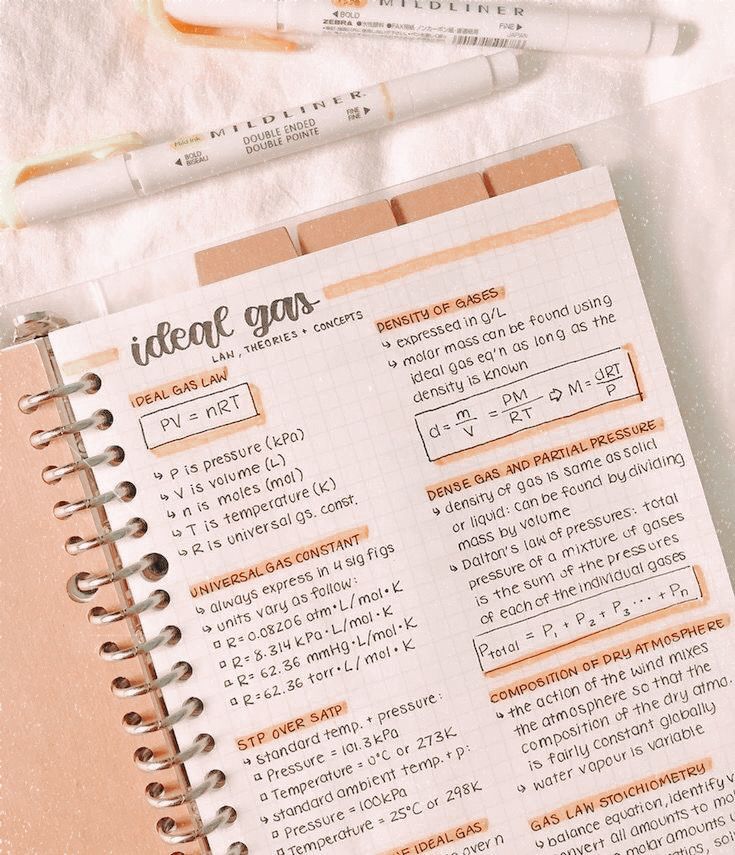 MILDLINER
BOLD
ZEBRA
FINE
JAPAN
Mild ink
MILDLINER
DOUBLE ENDED
DOUBLE POINTE
BOLD
BISEAU
FINE
FINE
ideal gas
LAW, THEORIES + CONCEPTS
IDEAL GAS LAW
PV = nRT
↳ P is pressure (kPa)
↳ V is volume (L)
↳ n is moles (mol)
↳ T is temperature (K)
↳ R is universal gs. const.
UNIVERSAL GAS CONSTANT
↳ always express in 4 sig figs
↳ units vary as follow:
▫ R= 0.08206 atm•L/mol•K
▫ R= 8.314 kPa•L/mol•K
▫ R= 62.36 mmHg•L/mol•K
▫ R=62.36 torr•L/mol•K
STP OVER SATP
↳ standard temp. + pressure:
▫ Pressure = 101.3kPa
▫ Temperature = 0°C or 273K
↳ standard ambient temp. + p:
▫ Pressure = 100kPa
▫ Temperature = 25°C or 298K
IDEAL GAS
DENSITY OF GASES
↳ expressed in g/L
↳ molar mass can be found using
ideal gas eq'n as long as the
density is known
d = m/V = PM/RT ⇨ M = dRT/P
DENSE GAS AND PARTIAL PRESSURE
↳ density of gas is same as solid
or liquid: can be found by dividing
mass by volume
↳ Dalton's law of pressures: total
pressure of a mixture of gases
is the sum of the pressures
of each of the individual gases
Ptotal = P1 + P2 + P3 ... + Pn
COMPOSITION OF DRY ATMOSPHERE
↳ the action of the wind mixes
the atmosphere so that the
composition of the dry atma.
is fairly constant globally
↳ water vapour is variable
GAS LAW STOICHIOMETRY
↳ balance equation, identify
convert all amounts to
molar amounts